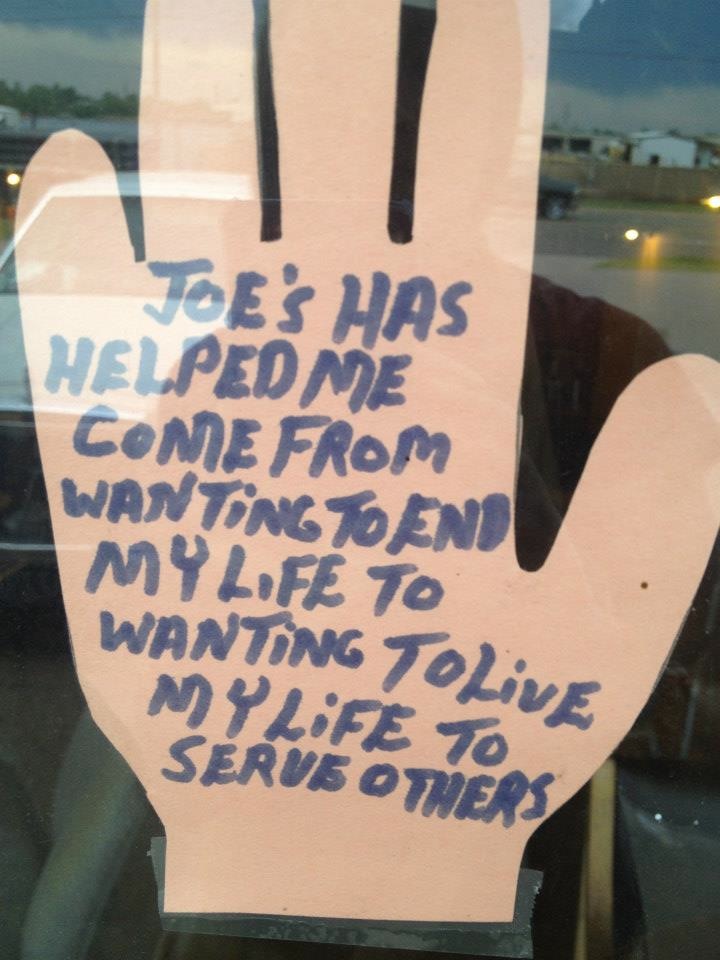 JOE'S HAS
HELPED ME
COME FROM
WANTING TO END
MY LIFE TO
WANTING TO LIVE
MY LIFE TO
SERVE OTHERS